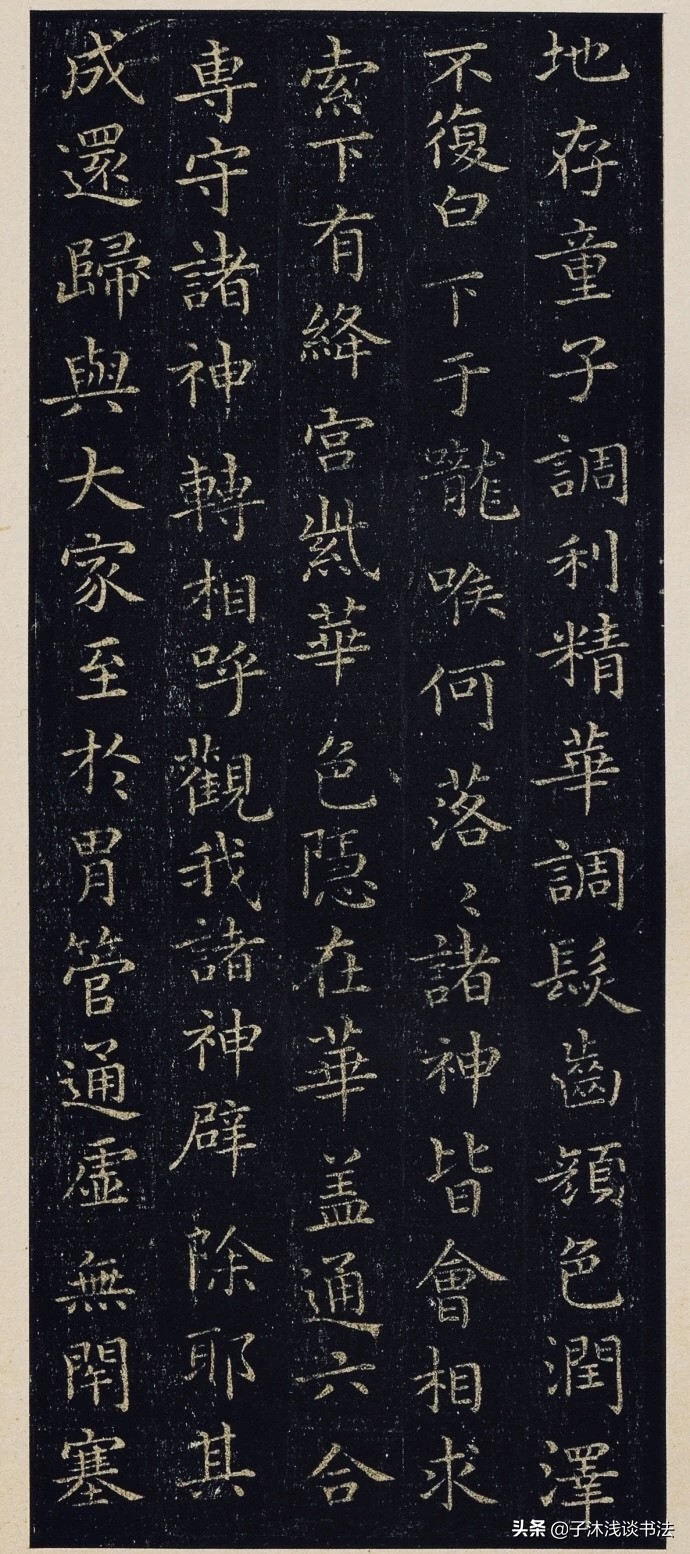 地存童子調利精華調髮齒顔色潤澤
不復白下于嚨喉何落〻諸神皆會相求
索下有絳宮紫華色隱在華盖通六合
專守諸神轉相呼觀我諸神辟除耶其
成還歸與大家至於胃管通虛無閉塞
头条 @子沐浅谈书法